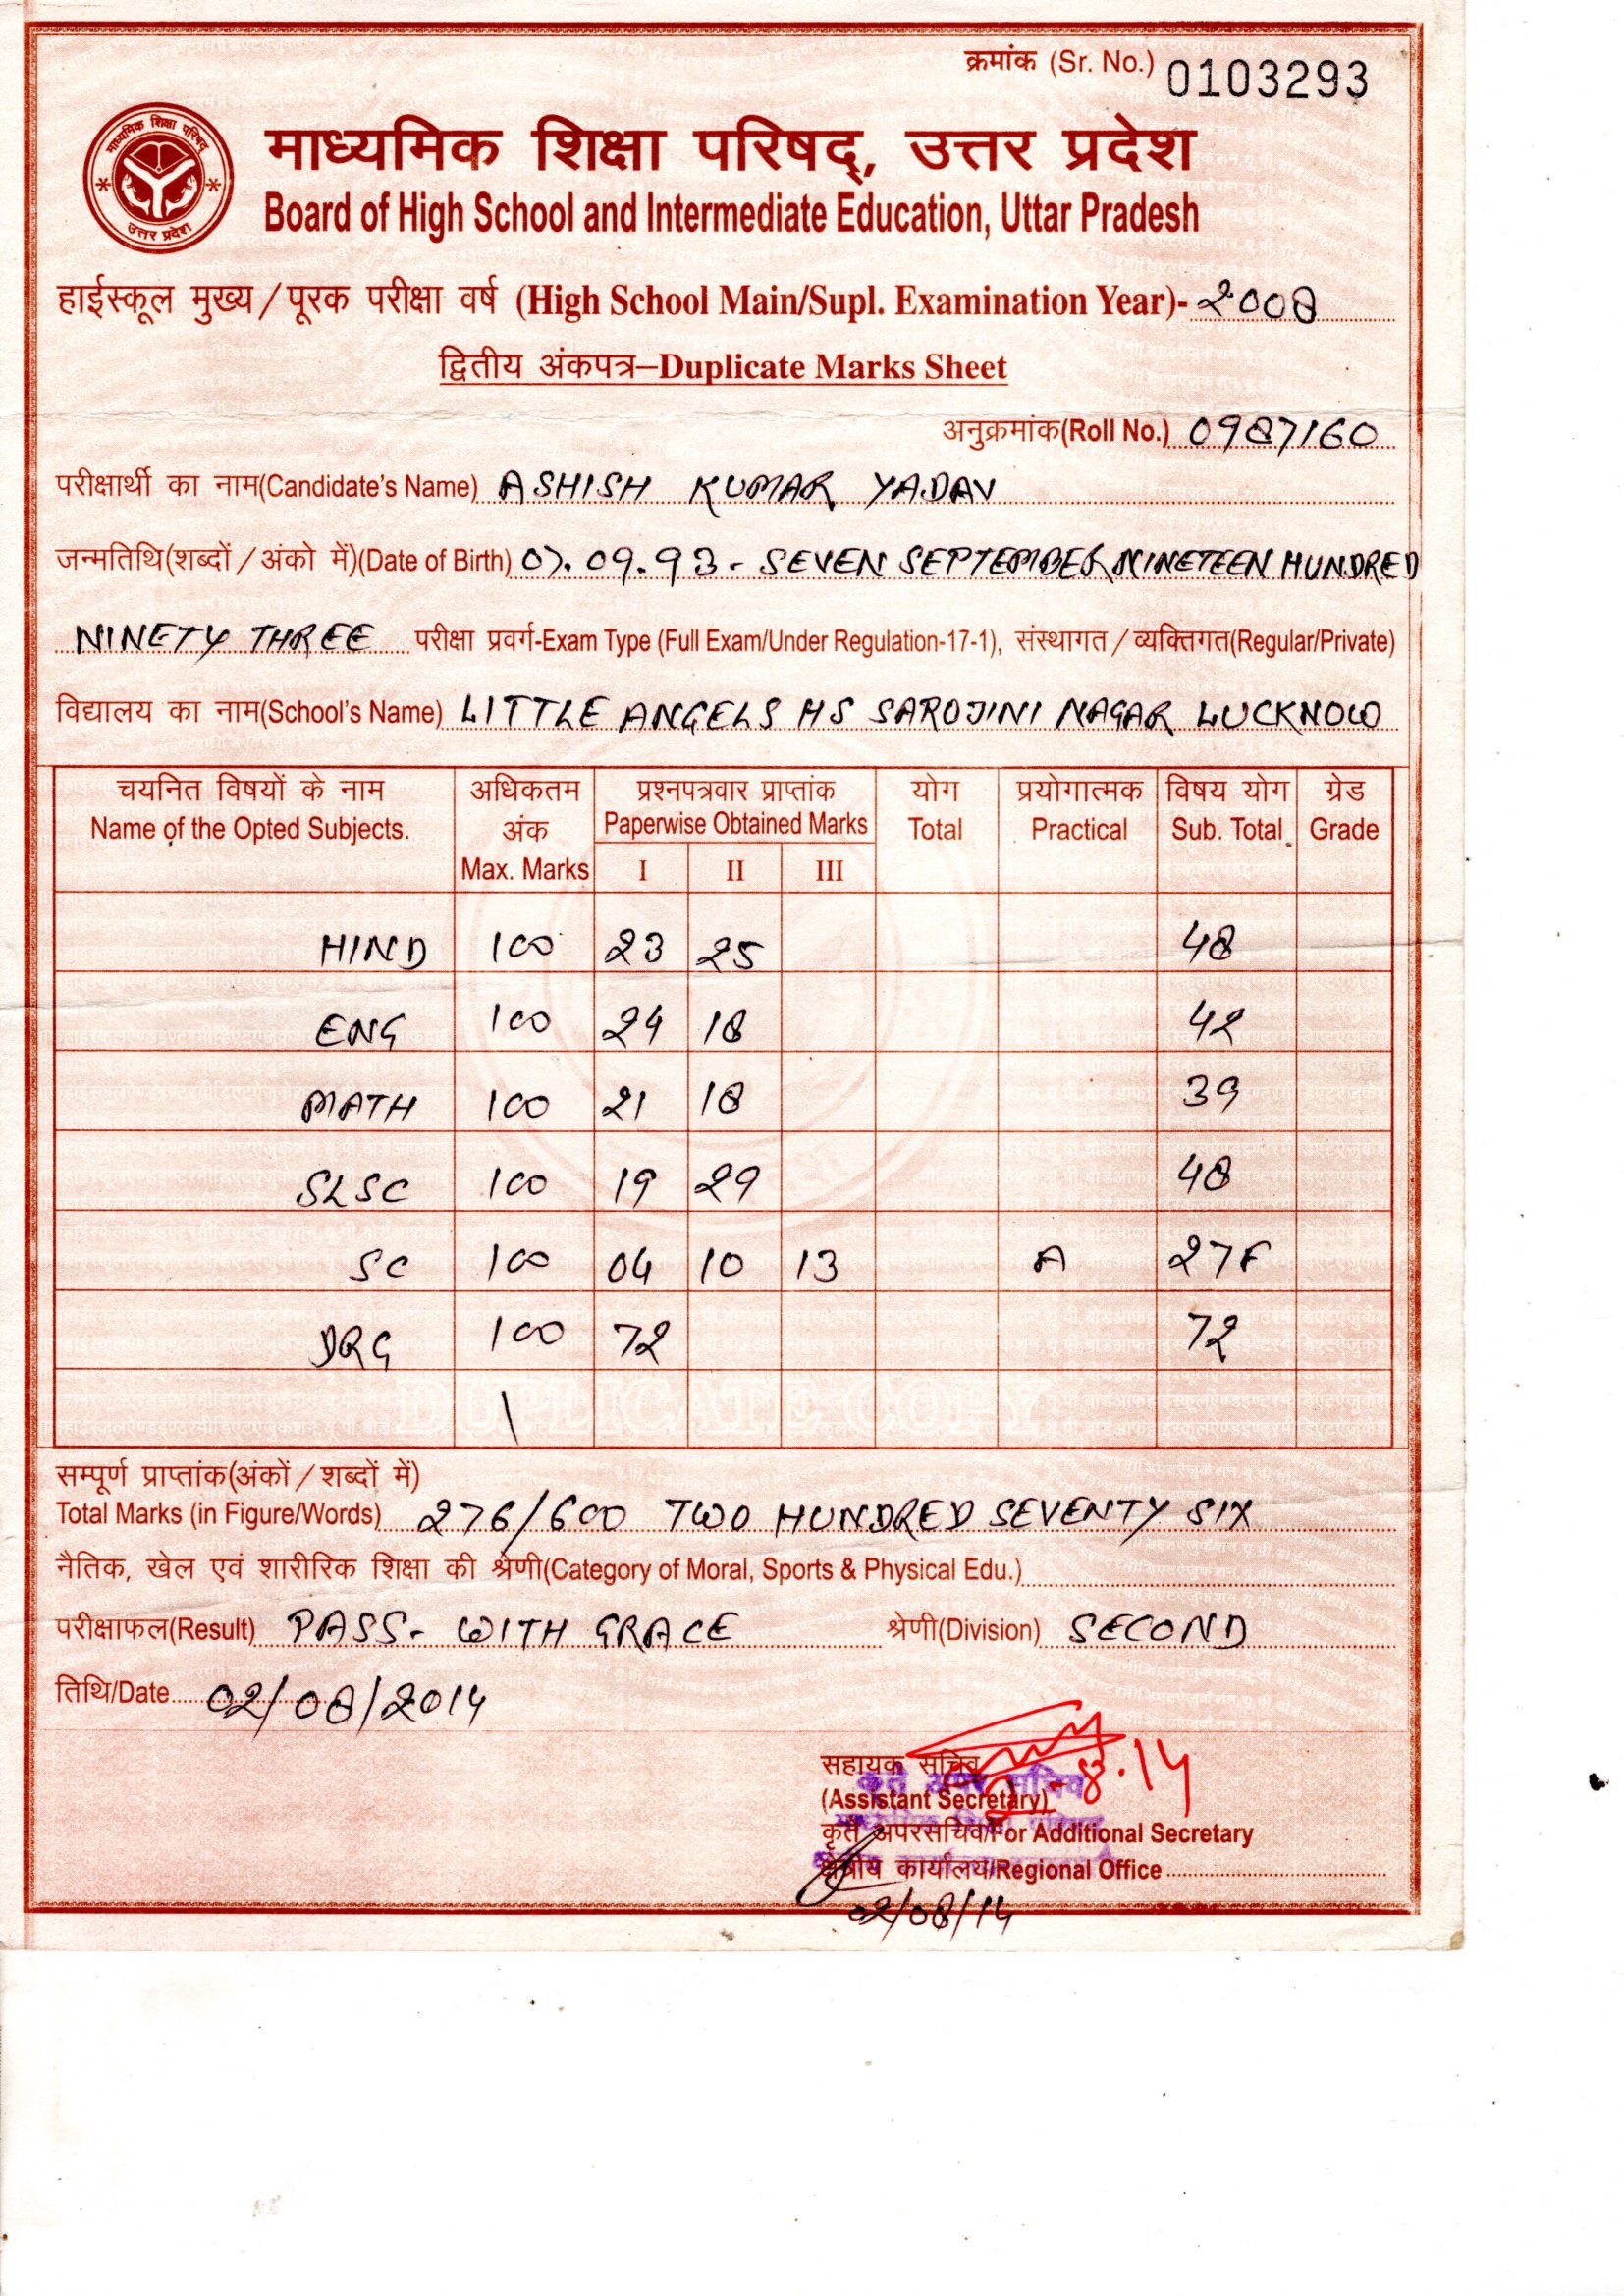 क्रमांक (Sr. No.) 0103293
माध्यमिक शिक्षा परिषद् उत्तर प्रदेश
माध्यमिक शिक्षा परिषद्, उत्तर प्रदेश
Board of High School and Intermediate Education, Uttar Pradesh
हाईस्कूल मुख्य/पूरक परीक्षा वर्ष (High School Main/Supl. Examination Year)- 2008
द्वितीय अंकपत्र–Duplicate Marks Sheet
अनुक्रमांक(Roll No.) 0987160
परीक्षार्थी का नाम(Candidate's Name) ASHISH KUMAR YADAV
जन्मतिथि(शब्दों/अंको में)(Date of Birth) 07.09.93 - SEVEN SEPTEMBER NINETEEN HUNDRED
NINETY THREE परीक्षा प्रवर्ग-Exam Type (Full Exam/Under Regulation-17-1), संस्थागत/व्यक्तिगत(Regular/Private)
विद्यालय का नाम(School's Name) LITTLE ANGELS HS SAROJINI NAGAR LUCKNOW
चयनित विषयों के नाम अधिकतम प्रश्नपत्रवार प्राप्तांक योग प्रयोगात्मक विषय योग ग्रेड
Name of the Opted Subjects. अंक Paperwise Obtained Marks Total Practical Sub. Total Grade
Max. Marks I II III
HIND 100 23 25 48
ENG 100 24 18 42
MATH 100 21 18 39
SLSC 100 19 29 48
SC 100 04 10 13 A 27F
DRG 100 72 72
DUPLICATE COPY
सम्पूर्ण प्राप्तांक(अंकों/शब्दों में)
Total Marks (in Figure/Words) 276/600 TWO HUNDRED SEVENTY SIX
नैतिक, खेल एवं शारीरिक शिक्षा की श्रेणी(Category of Moral, Sports & Physical Edu.)
परीक्षाफल(Result) PASS- WITH GRACE श्रेणी(Division) SECOND
तिथि/Date 02/08/2014
सहायक सचिव 8.14
कृते अपर सचिव
(Assistant Secretary)
माध्यमिक शिक्षा परिषद
कृते अपरसचिव/For Additional Secretary
क्षेत्रीय कार्यालय/Regional Office
02/08/14